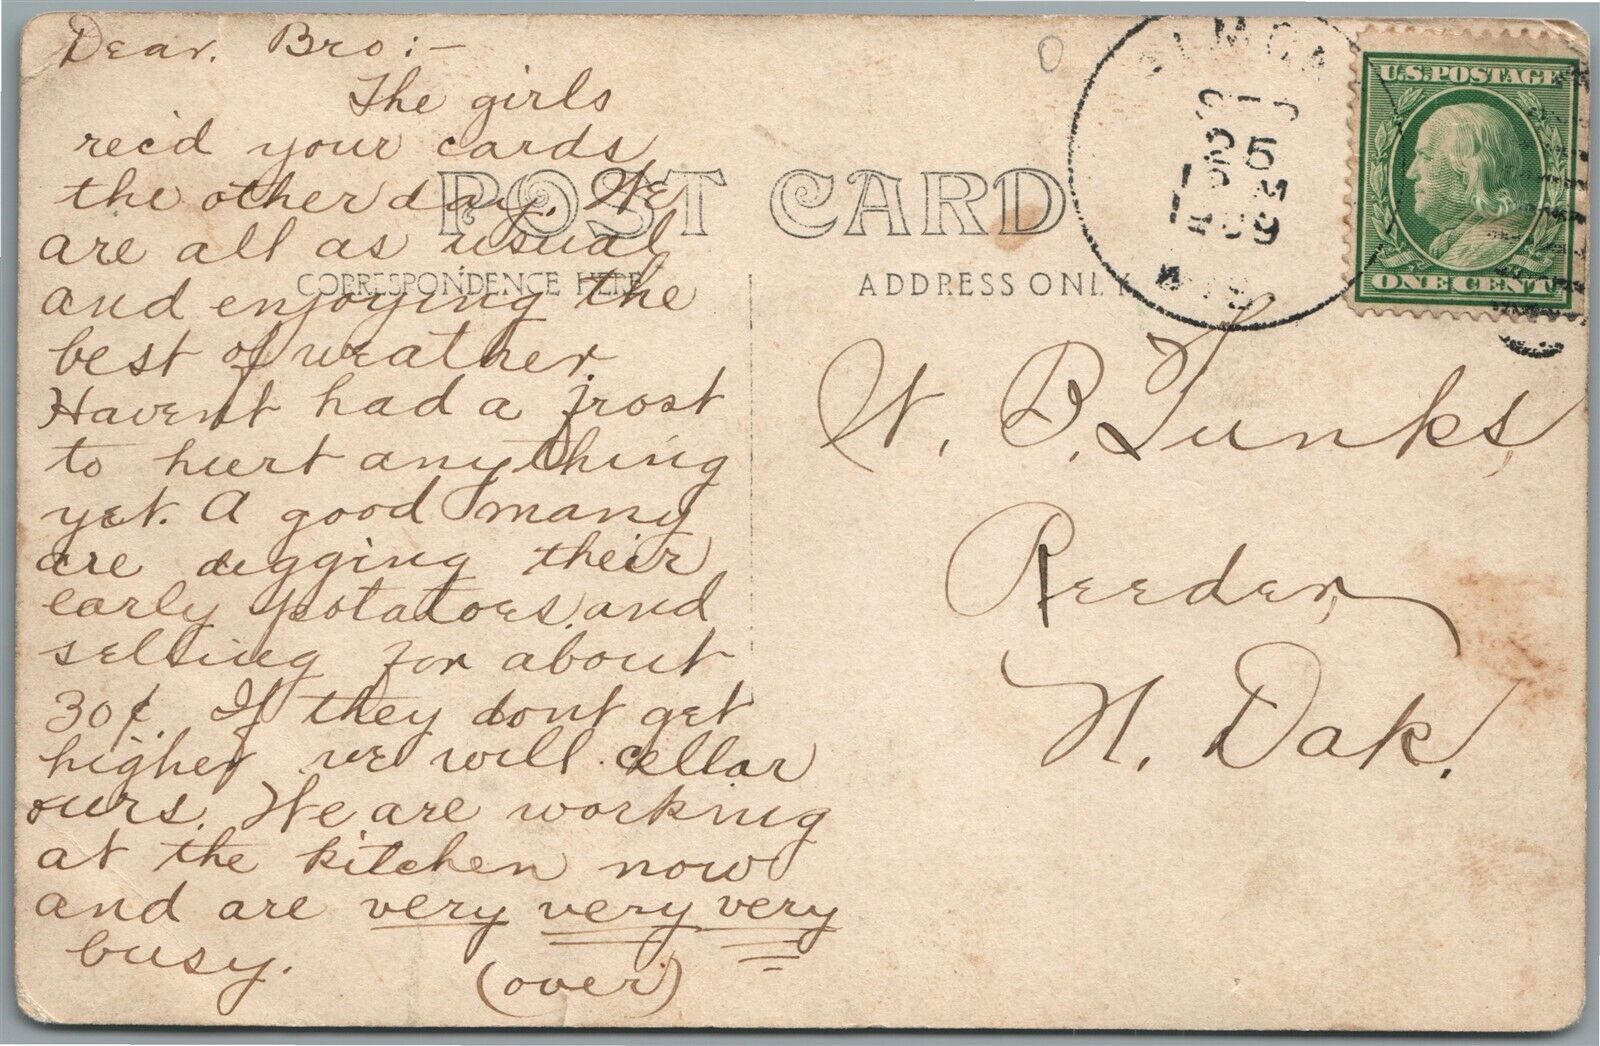 Dear. Bro:-
The girls
rec'd your cards
the other day. We
are all as usual
and enjoying the
best of weather.
Havent had a frost
to hurt anything
yet. A good many
are digging their
early potatoes, and
selling for about
30¢. If they dont get
higher we will cellar
ours. We are working
at the kitchen now
and are very very very
busy.
(over)
POST CARD
CORRESPONDENCE HERE
ADDRESS ONLY
25
PM
1909
WIS
U.S. POSTAGE
ONE CENT
W. B. Tunks,
Reeder,
N. Dak.